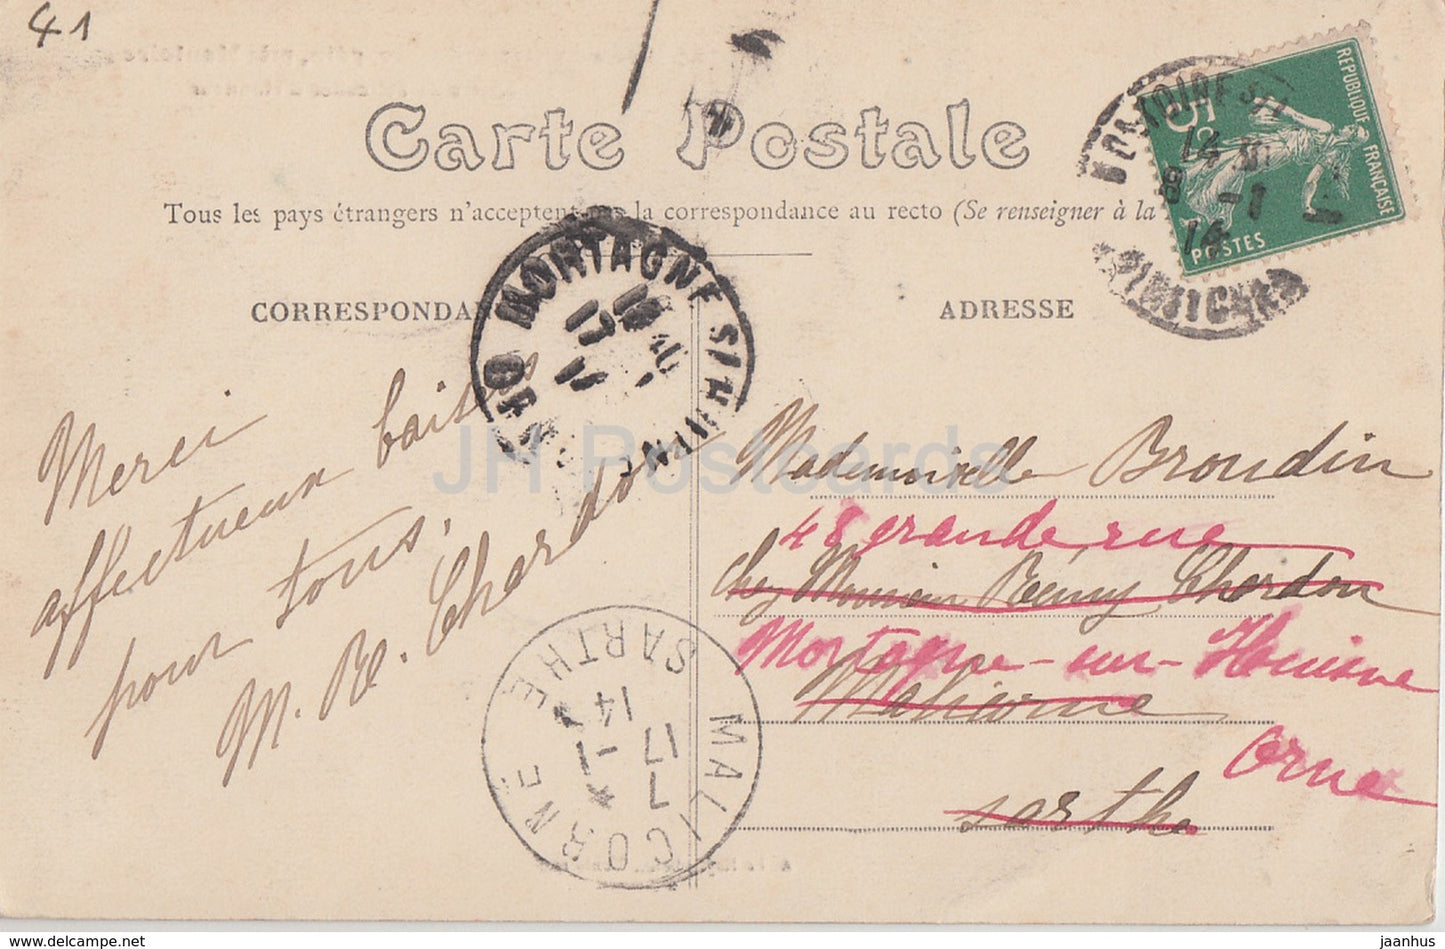 41
Carte Postale
Tous les pays étrangers n'acceptent pas la correspondance au recto (Se renseigner à la
CORRESPONDANCE
ADRESSE
RÉPUBLIQUE FRANÇAISE
5c
POSTES
14
8 -1
14
MORTAGNE S/HUISNE
ORNE
Merci
affectueux baisers
pour tous.
M. R. Chardon
Mademoiselle Broudin
48 grande rue
chez Monsieur Rémy Chardon
Mortagne-sur-Huisne
Malicorne
Orne
sarthe
MALICORNE
SARTHE
7
17 -1
14
JH Postcards
jaanhus
hu-lu.delcampe.net